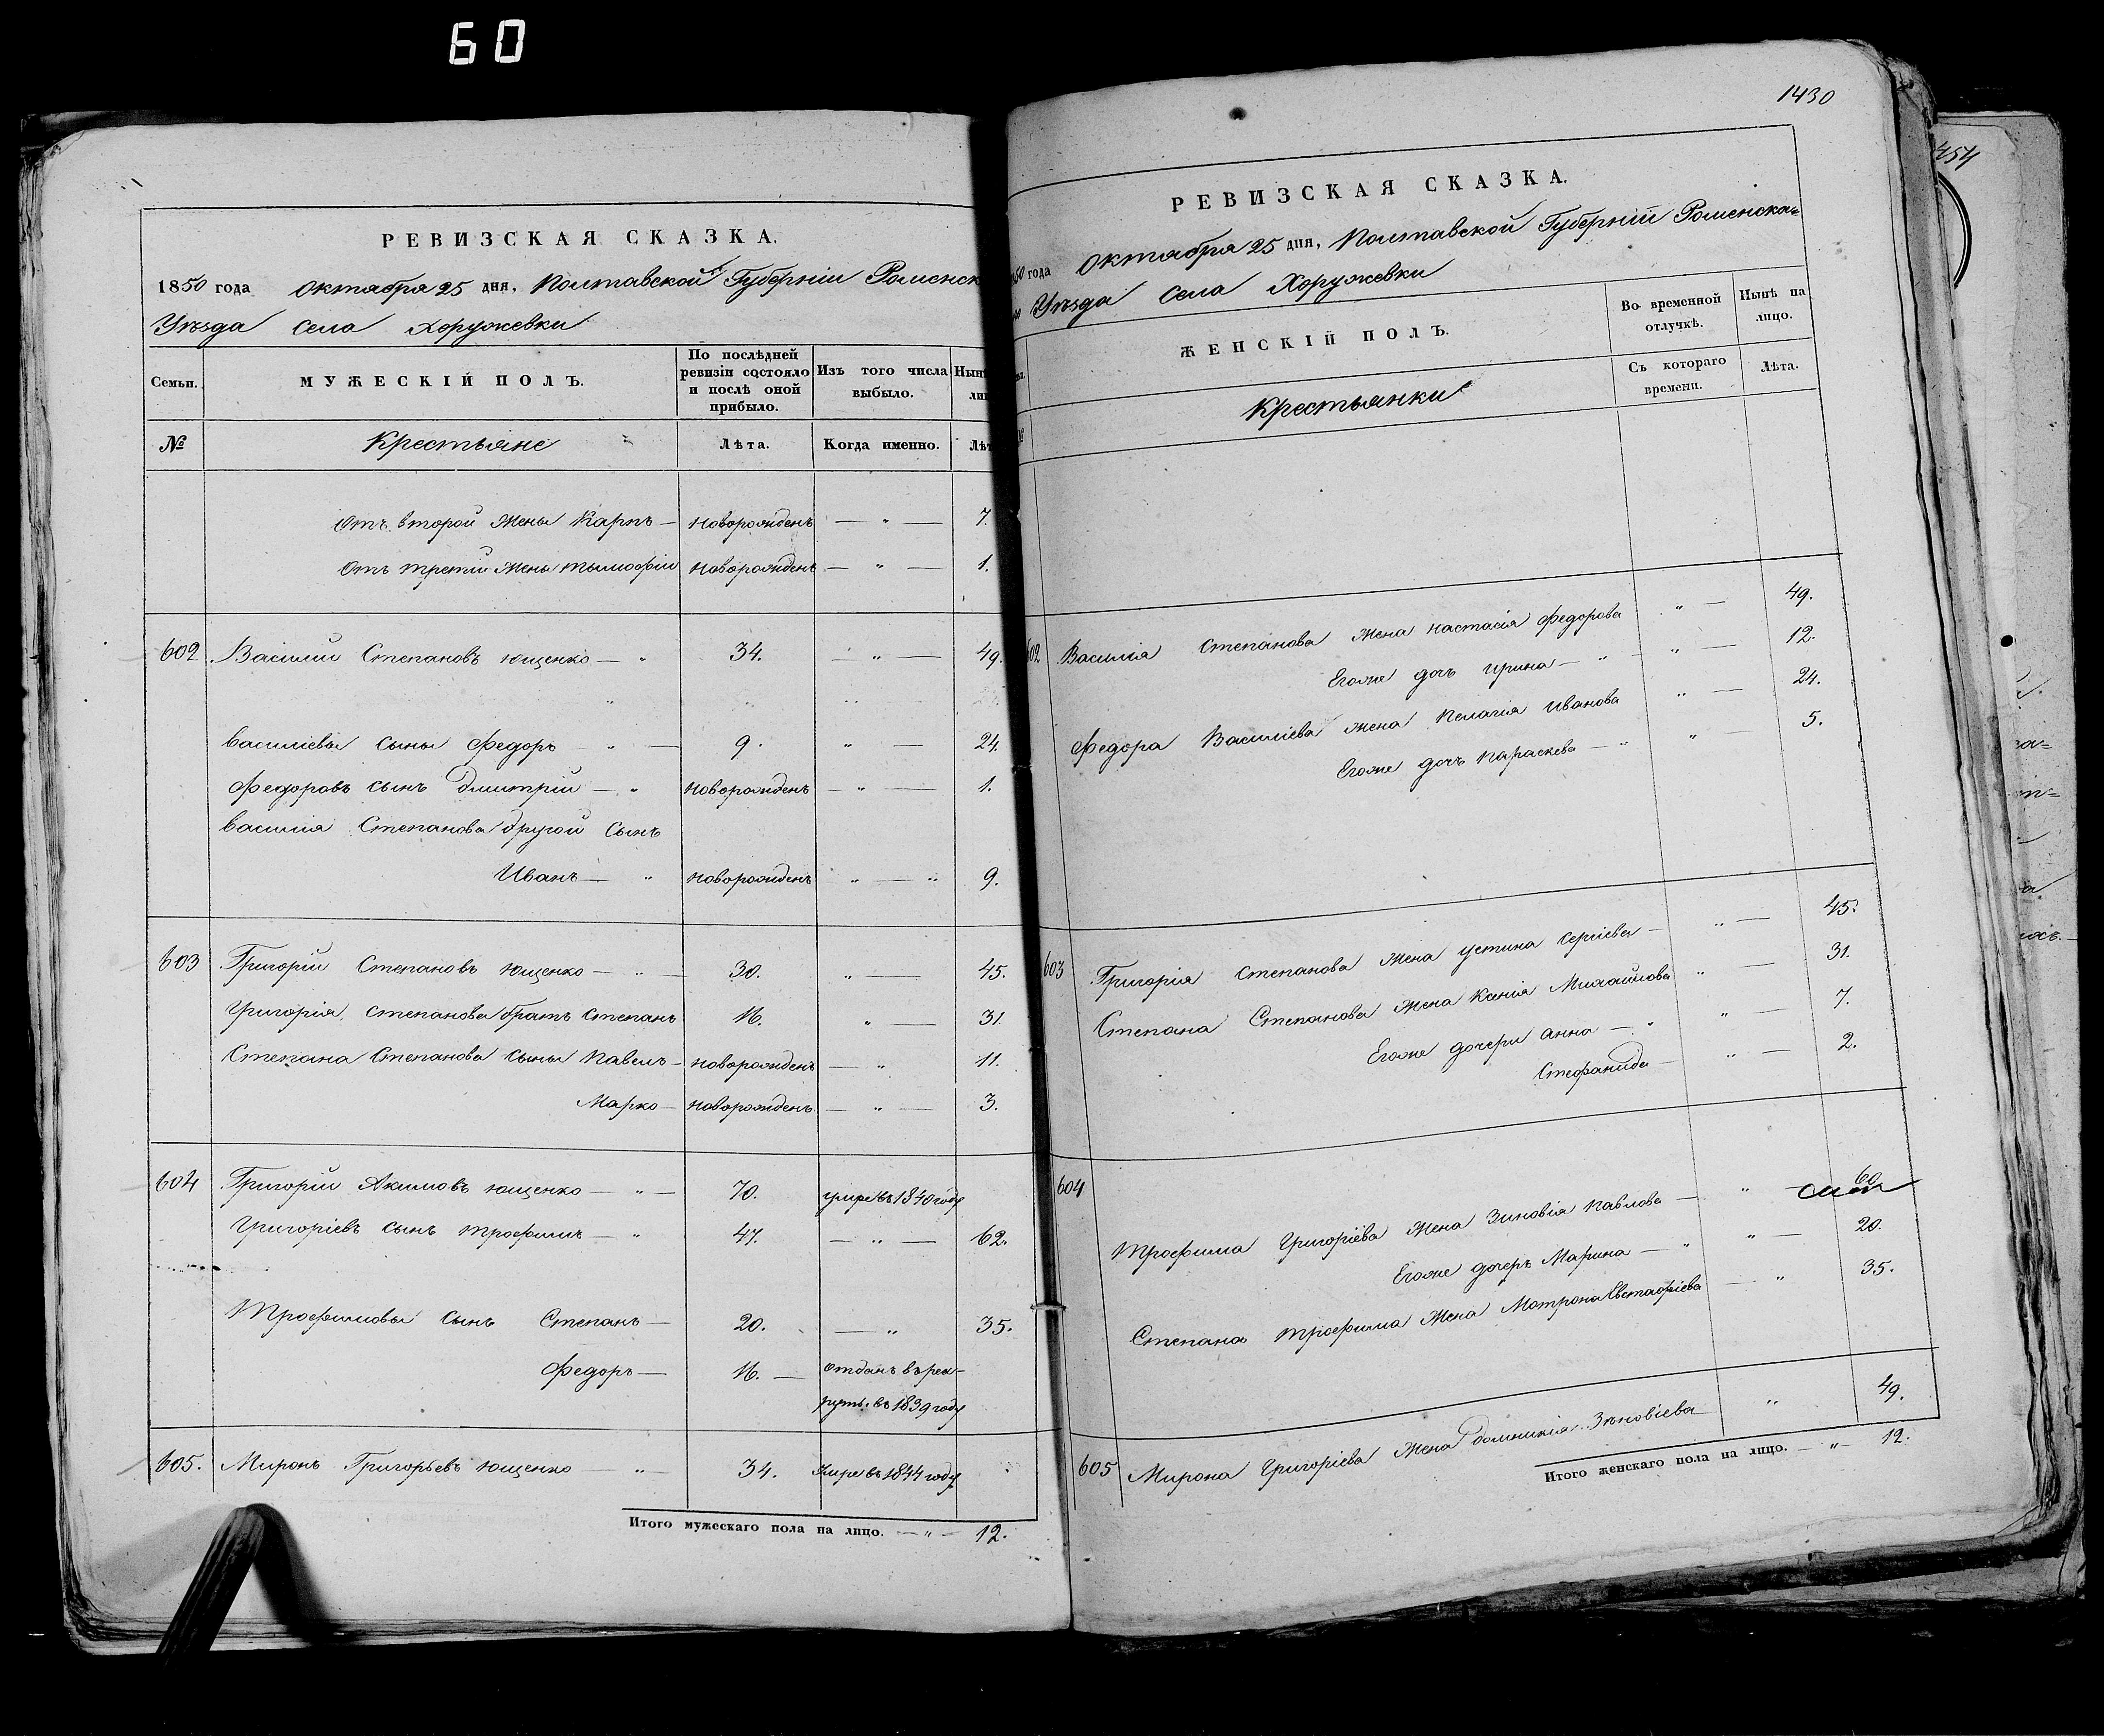 60
РЕВИЗСКАЯ СКАЗКА.
1850 года Октября 25 дня, Полтавской Губерніи Роменск
Уѣзда села Хоружевки
Семьи.
МУЖЕСКІЙ ПОЛЪ.
По послѣдней ревизіи состояло и послѣ оной прибыло.
Изъ того числа выбыло.
№
Крестьяне
Лѣта.
Когда именно.
Отъ второй жены Карпъ — новорожденъ — „ — 7.
Отъ третьи жены Тымофій новорожденъ — „ — 1.
602 Василий Степановъ Ющенко — „ 34. — „ — 49.
Василіевы сыны Федоръ — „ — 9. „ — 24.
Федоровъ сынъ Дмитрій — „ новорожденъ — „ — 1.
Василия Степанова другой сынъ
Иванъ — „ новорожденъ „ — „ 9.
603 Григорій Степановъ Ющенко — „ — 30. „ — 45.
Григорія Степанова братъ Степанъ 16. „ — 31.
Степана Степанова сыны Павелъ — новорожденъ — „ 11.
Марко — новорожденъ — „ — 3.
604 Григорій Акимовъ Ющенко — „ — 70. умре въ 1840 году
Григоріевъ сынъ Трофимъ — „ 47. — „ — 62.
Трофимовы сынъ Степанъ — 20. — „ 35.
Федоръ — 16. — отданъ в рек-
руты въ 1839 году
605. Миронъ Григорьевъ Ющенко — „ — 34. Умре въ 1844 году
Итого мужескаго пола на лицо. — „ — 12.
1430
РЕВИЗСКАЯ СКАЗКА.
года Октября 25 дня, Полтавской Губерніи Роменска=
Уѣзда села Хоружевки
ЖЕНСКІЙ ПОЛЪ.
Во временной отлучкѣ.
Нынѣ на лицо.
Съ котораго времени.
Лѣта.
Крестьянки
602 Василия Степанова жена Настасія Федорова „ — 49.
Егоже дочь Ирина — „ „ — 12.
Федора Василіева жена Пелагія Иванова „ — 24.
Егоже дочъ Параскева — „ „ 5.
603 Григорія Степанова жена Устина Сергіева — „ — 45.
Степана Степанова жена Ксенія Михайлова „ — 31.
Егоже дочери Анна — „ „ — 7.
Стефанида — „ — 2.
604 Трофима Григоріева жена Зиновія Павлова — „ — 60.
Егоже дочерь Марина — „ „ — 20.
Степана Трофима жена Мотрона Евстафіева — „ 35.
605 Мирона Григоріева жена Домникія Зѣновіева „ 49.
Итого женскаго пола на лицо. — „ — 12.
454